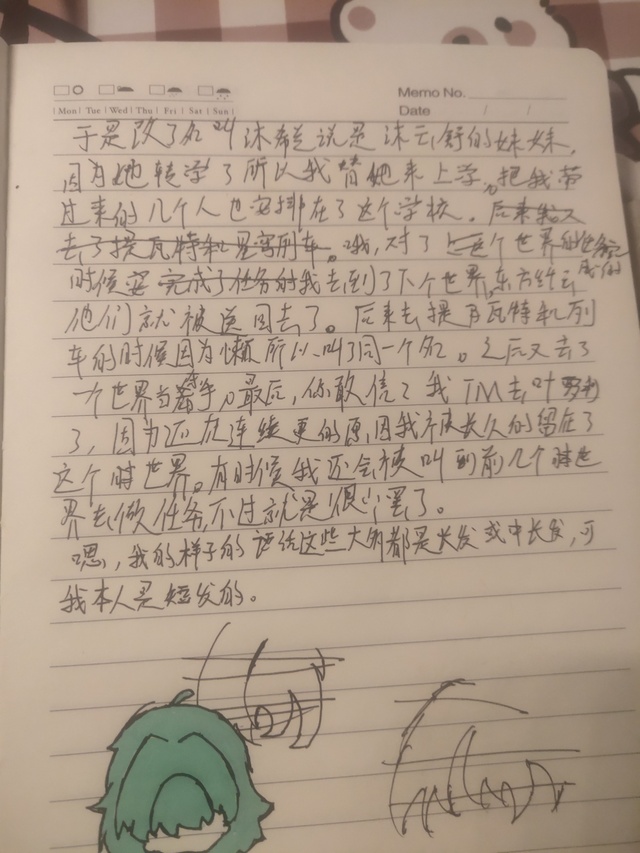 Memo No.
Mon Tue Wed Thu Fri Sat Sun
Date / /
于是改了名叫沐希说是沐云舒的妹妹,
因为她转学了所以我替她来上学。把我带
过来的几个人也安排在了这个学校。后来我又
去了提瓦特和星穹列车。哦,对了上一个世界的任务完成的
时候 完成了任务的我去到了下个世界,东方纤云
他们就被送回去了。后来去提瓦特和列
车的时候因为懒所以叫了同一个名。之后又去了
一个世界当 手。最后,你敢信?我TM去叶罗利
了,因为还在连续更的原因我被长久的留在了
这个世界。有时候我还会被叫到前几个世
界去做任务,不过就是很少罢了。
嗯,我的样子的话给这些大例都是长发或中长发,可
我本人是短发的。